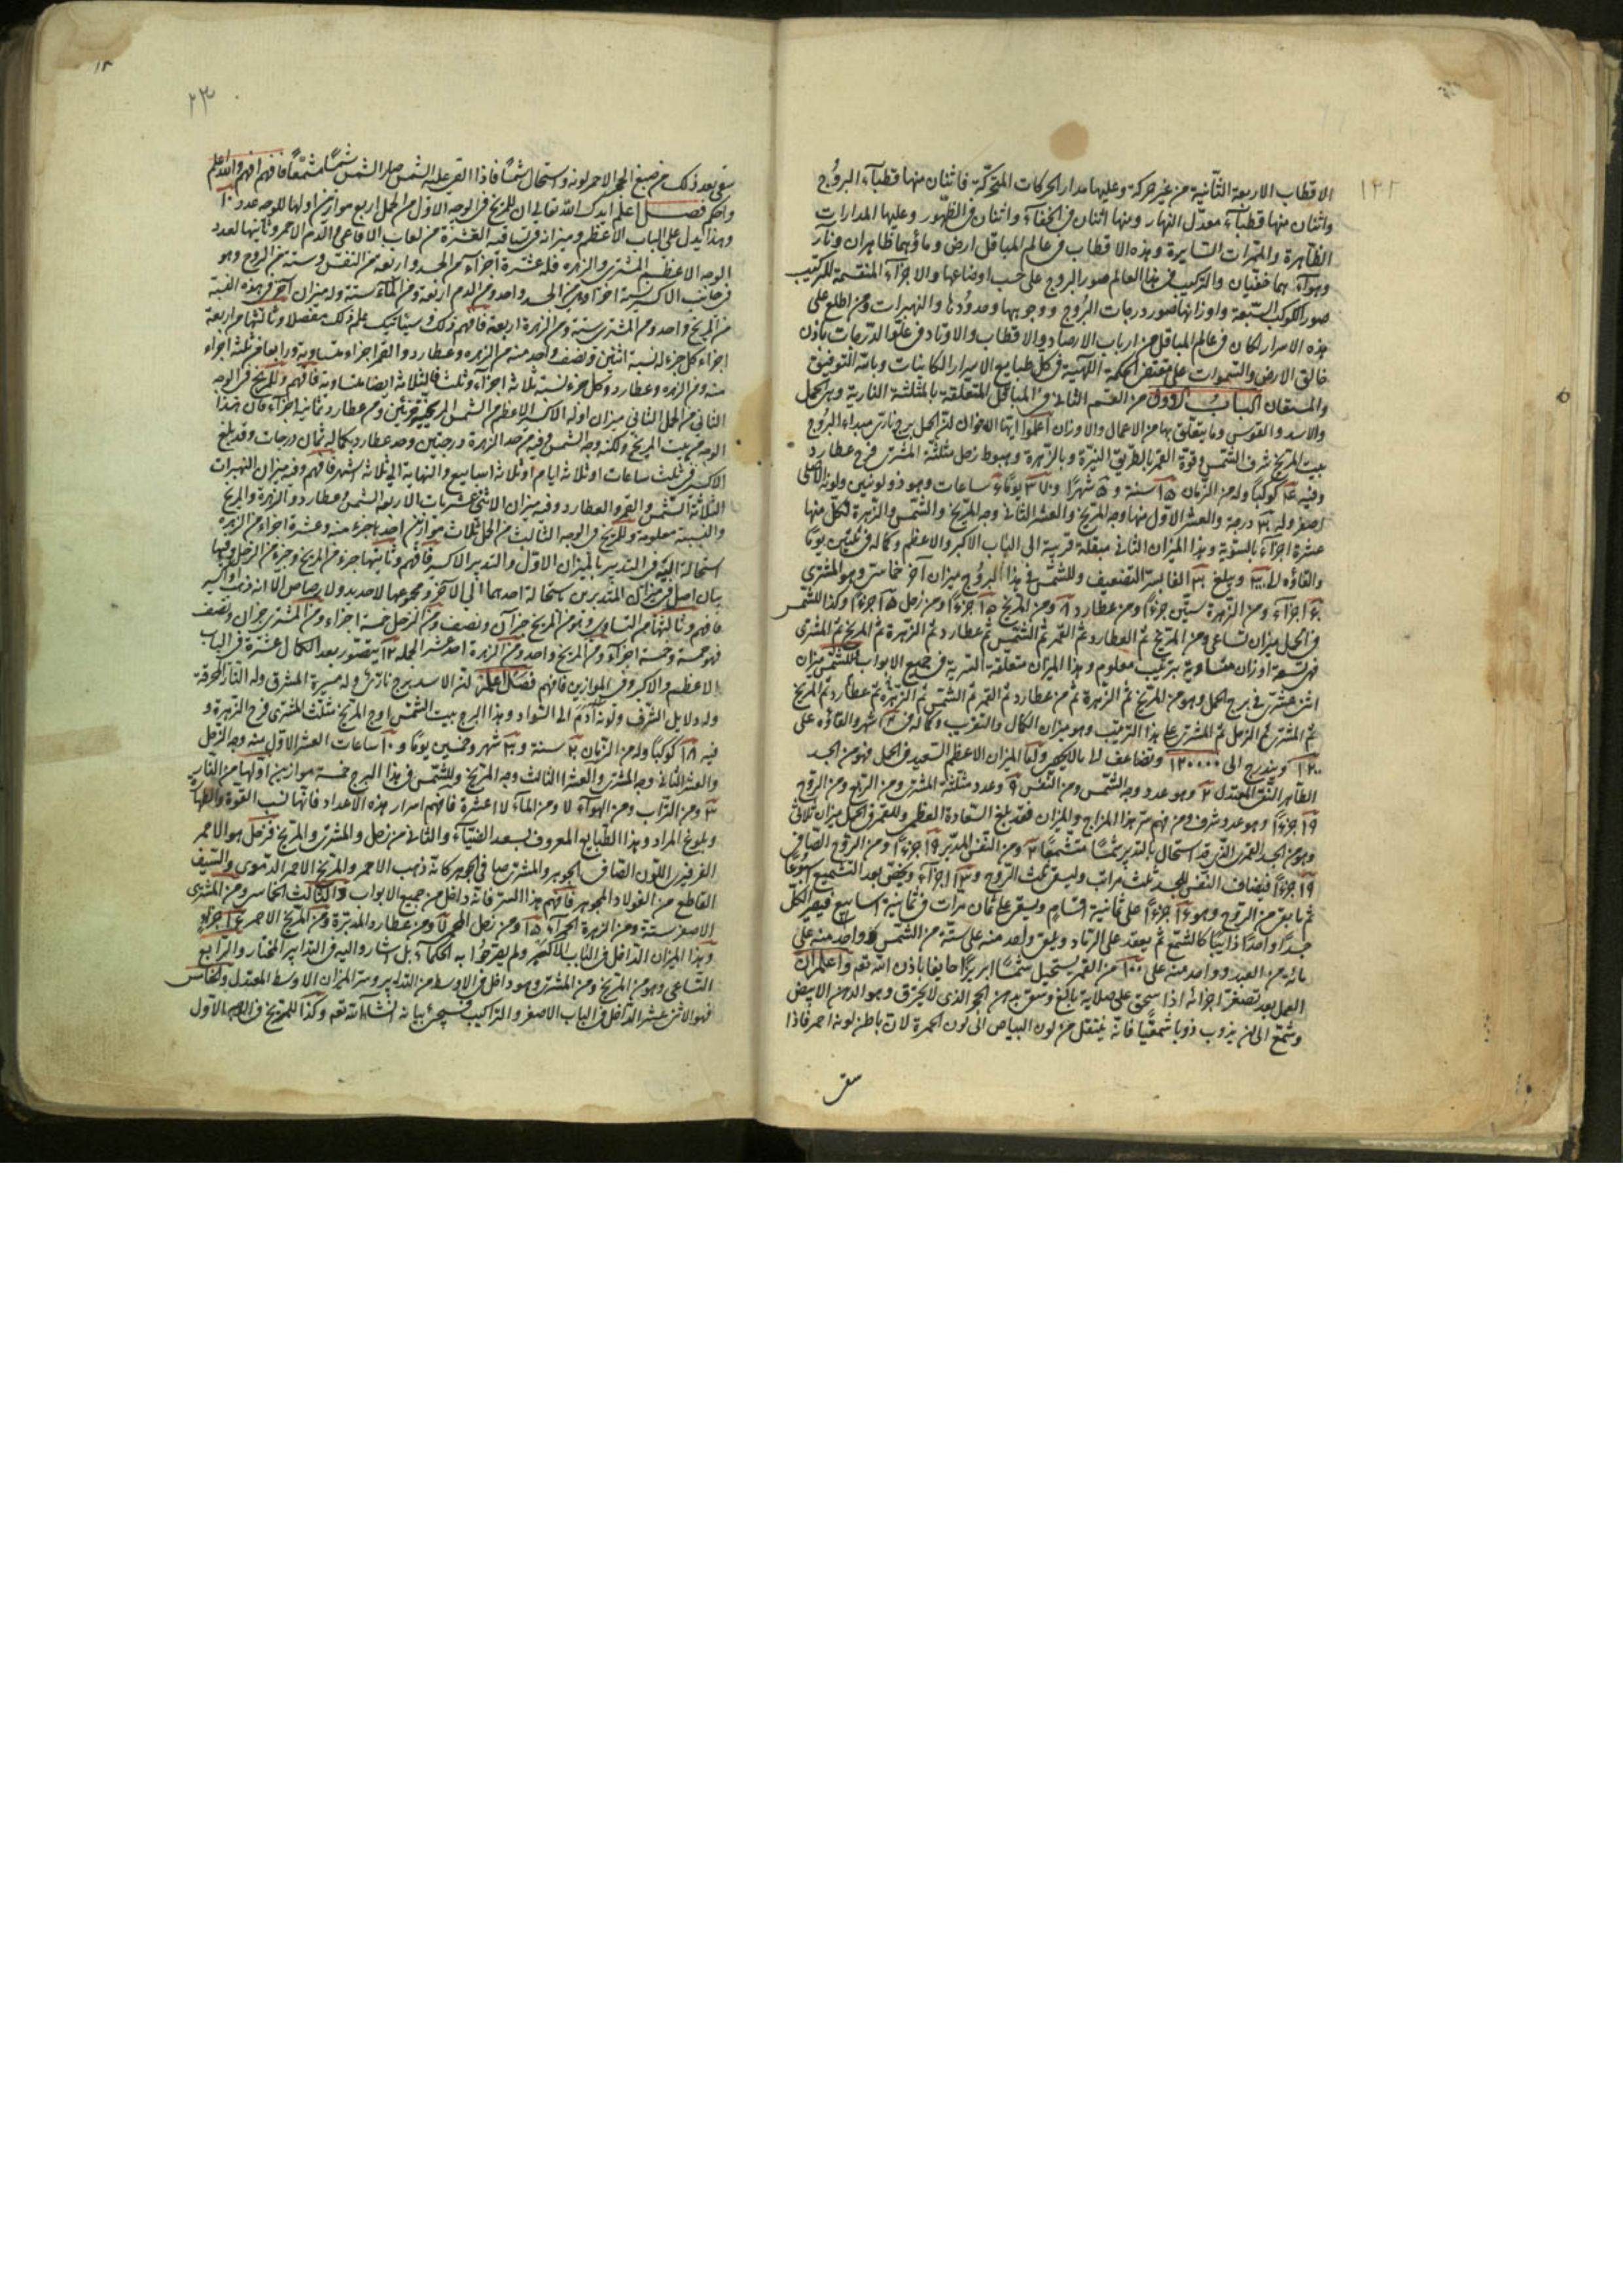 ١٢٢
الاقطاب الاربعة الثانية من غير حركة وعليها مدار الحركات المتحركة فاثنان منها قطبآء البروج
واثنان منها قطبآء معدل النهار ومنها اثنان فى الخفاء واثنان فى الظهور وعليها المدارات
الظاهرة والسايرة وهذه الاقطاب فى عالم المباقل ارض وماؤهما ظاهران ونار
وهوآء هما خفيان والتركيب فى هذا العالم صور البروج على حسب اوضاعها والاجزآء المنقسمة للتركيب
صور الكوكب السبعة واوزانها صور درجات البروج ووجوهها وحدودها والنهبرات ومن اطلع على
هذه الاسرار كان فى عالم المباقل من ارباب الارصاد والاقطاب والاوتاد فى علو الدرجات باذن
خالق الارض والسموات على مقتضى الحكمة الالهية فى كل طبايع الاسرار الكاينات وبالله التوفيق
والمستعان الباب الاول من القسم الثانى فى المباقل المتعلقة بالمثلثة النارية وهى الحمل
والاسد والقوس وما يتعلق بها من الاعمال والاوزان اعلموا ايها الاخوان ان الحمل برج نارى مبداء البروج
بيت المريخ شرف الشمس وقوة القمر بالطريق النيرة وبالزهرة وهبوط زحل مثلثة المشترى فرح عطارد
وفيه كوكبا وله من الزمان ١٥ سنة و ٥ شهرا و ٣٧ يوما و ساعات وهو ذو لونين ولونه الاصلى
اصفر وله درجة والعشر الاول منها وجه المريخ والعشر الثانى وجه المريخ والشمس والزهرة لكل منها
عشرة اجزآء بالسوية وهذا الميزان الثانى مبقلة قريبة الى الباب الاكبر والاعظم وكماله فى ثلثين يوما
والقاؤه ويبلغ الفا بسر التضعيف وللشمس فى هذا البروج ميزان آخر خامس وهو المشترى
اجزآء ومن الزهرة ستين جزءا ومن عطارد ٨ ومن المريخ ١٥ جزءا ومن زحل ١٥ جزءا وكذا للشمس
فى الحمل ميزان تساعى ومن المريخ ثم العطارد ثم القمر ثم الشمس ثم عطارد ثم الزهرة ثم المريخ ثم المشترى
فهى تسعة اوزان متساوية بترتيب معلوم وهذا الميزان متعلقة السرية فى جميع الابواب للشمس ميزان
اثنى عشرى فى برج الحمل وهو من المريخ ثم الزهرة ثم من عطارد ثم القمر ثم الشمس ثم الزهرة ثم عطارد ثم المريخ
ثم المشترى ثم الزحل ثم المشترى على هذا الترتيب وهو ميزان الكمال والتقريب وكماله فى شهر والقاؤه على
١٢٠٠ ويندرج الى ١٢٠٠٠٠ وتضاعف واما الميزان الاعظم السعيد فى الحمل فهو من الجسد
الطاهر النقى المعتدل وهو عدد وجه الشمس ومن النفس ٩ وعدد مثلثة المشترى ومن الربع ومن الروح
١٩ جزءا وهو عدد شرف ومن فهم سر هذا المزاج والميزان فقد بلغ السعادة العظمى وللقمر فى الحمل ميزان ثلاثى
وهو من الجسد القمرى الذى قد استحال بالتدبير شمسا متشمعا ومن النفس المدبر ١٩ جزءا ومن الروح الصافى
١٩ جزءا فيضاف النفس للجسد بثلث مرات وليسقى بثلث الروح و اجزآء ويخفى بعد التشميع اسبوعا
ثم ما بقى من الروح وهو جزءا على ثمانية اقسام ويسقى بها ثمان مرات فى ثمانية اسابيع فيصير الكل
جسدا واحدا ذائبا كالشمع ثم يعقد على الرماد ويلقى واحد منه على ستة من الشمس وواحد منه على
مائة من العبد وواحد منه على ١٠٠ من القمر يستحيل شمسا ابريزا خايفا باذن الله تعالى واعلم ان
العمل بعد تصفية اجزائه اذا سحق على صلاية بالكف وسقى بدهن الحجر الذى لا يحترق وهو الدهن الابيض
وشمع الى ان يذوب ذوبا شمعيا فانه ينتقل من لون البياض الى لون الحمرة لان باطن لونه احمر فاذا
سقى
٢٣
سقى بعد ذلك من صبغ الحجر الاحمر لونه واستحال شمسا فاذا القى عليه الشمس صار الشمس شمسا مشمعا فافهم افهم والله اعلم
واحكم فصل اعلم ايدك الله تعالى ان للمريخ فى الوجه الاول من الحمل اربع موازين اولها للوجه عدد ١٠
وهذا يدل على الباب الاعظم وميزانه فى تساقيه العشرة من لعاب الافاعى والدم الاحمر وثانيها لعدد
الوجه الاعظم المشترى والزهرة فله عشرة اجزآء من الجسد واربعة من النفس وستة من الروح وهو
فى جانب الاكسير ستة اجزآء ومن الجسد واحد ومن الدم اربعة ومن المآء ستة وله ميزان آخر فى هذه النسبة
من المريخ واحد ومن المشترى ستة ومن الزهرة اربعة فافهم ذلك وسيأتيك علم ذلك مفصلا وثالثها من اربعة
اجزاء كل جزء له نسبة اثنين ونصف واحد منه من الزهرة وعطارد والقمر اجزاء متساوية ورابعها فى ثلثة اجزاء
منه ومن الزهرة وعطارد وكل جزء نسبة ثلاثة اجزآء وثلث فالثلاثة ايضا متساوية فافهم وللمريخ فى الوجه
الثانى من الحمل الثانى ميزان اوله الاكسير الاعظم من الشمس المريخية جزئين ومن عطارد ثمانية اجزآء فان هذا
الوجه من بيت المريخ ولكنه وجه الشمس وفيه من حد الزهرة درجتين وحد عطارد بكماله ثمان درجات وقد بلغ
الاكسير فى ثلث ساعات او ثلاثة ايام او ثلاثة اسابيع والنهاية الى ثلاثة اشهر فافهم وفيه ميزان النهبرات
الثلاثة الشمس والقمر والعطارد وفيه ميزان الاثنى عشريات الاربعة الشمس وعطارد والزهرة والمريخ
والنسبة معلومة وللمريخ فى الوجه الثالث من الحمل ثلاث موازين احدها جزء منه وعشرة اجزاء من الزهرة
استحالة اليه فى التدبير بالميزان الاول والتدبير الاكسير فافهم وثانيها جزء من المريخ وجزء من الزحل وفيها
بيان اصل فى ميزان المتدبرين استحالة احدهما الى الآخر ومجموعها لا حديد ولا رصاص الا انه ذهب واكسير
فافهم وثالثها من التساوى وهو من المريخ جزآن ونصف ومن الزحل خمسة اجزاء ومن المشترى جزان ونصف
فهو خمسة وخمسة اجزآء ومن المريخ واحد ومن الزهرة احد عشر الجملة ١٢ يتصور بعد الكمال عشرة فى الباب
الاعظم والاكبر وفى الموازين فافهم فصل اعلم ان الاسد برج نارى وله مسيرة المشرق وله النار المحرقة
وله دلايل الشرف ولونه ادم الى السواد وهذا البرج بيت الشمس اوج المريخ مثلث المشترى فرح الزهرة و
فيه ١٨ كوكبا وله من الزمان سنة و شهر وخمسين يوما و ١٠ ساعات العشر الاول منه وجه الزحل
والعشر الثانى وجه المشترى والعشر الثالث وجه المريخ وللشمس فى هذا البرج خمسة موازين اولها من النار
ومن التراب ومن الهوآء ومن المآء عشرة فافهم اسرار هذه الاعداد فانها نسب القوة والطهارة
وبلوغ المراد وهذا الطبايع المعروف بسعد الضياء والثانى من زحل والمشترى والمريخ فزحل هو الاحمر
الفرفيرى اللون الصافى الجوهر والمشترى صافى الجوهر كانه ذهب الاحمر والمريخ الاحمر الدموى والسيف
القاطع من الفولاد الجوهر فافهم هذا السر فانه داخل من جميع الابواب والثالث الخامس ومن المشترى
الاصفر ستة ومن الزهرة الحمرآء ١٥ ومن زحل الحمر ومن عطارد المدبرة ومن المريخ الاحمر جزءا
وهذا الميزان الداخل فى الباب الاكبر ولم يصرحوا به الحكمآء بل اشاروا اليه فى التدابير المختار والرابع
التساعى وهو من المريخ ومن المشترى وهو داخل فى الاوسط من التدابير وستة الميزان الاوسط المعتدل والخامس
فهو الاثنى عشر الداخل فى الباب الاصغر والتراكيب وسيجئ بيانه انشاء الله تعالى وكذا للمريخ فى الوجه الاول